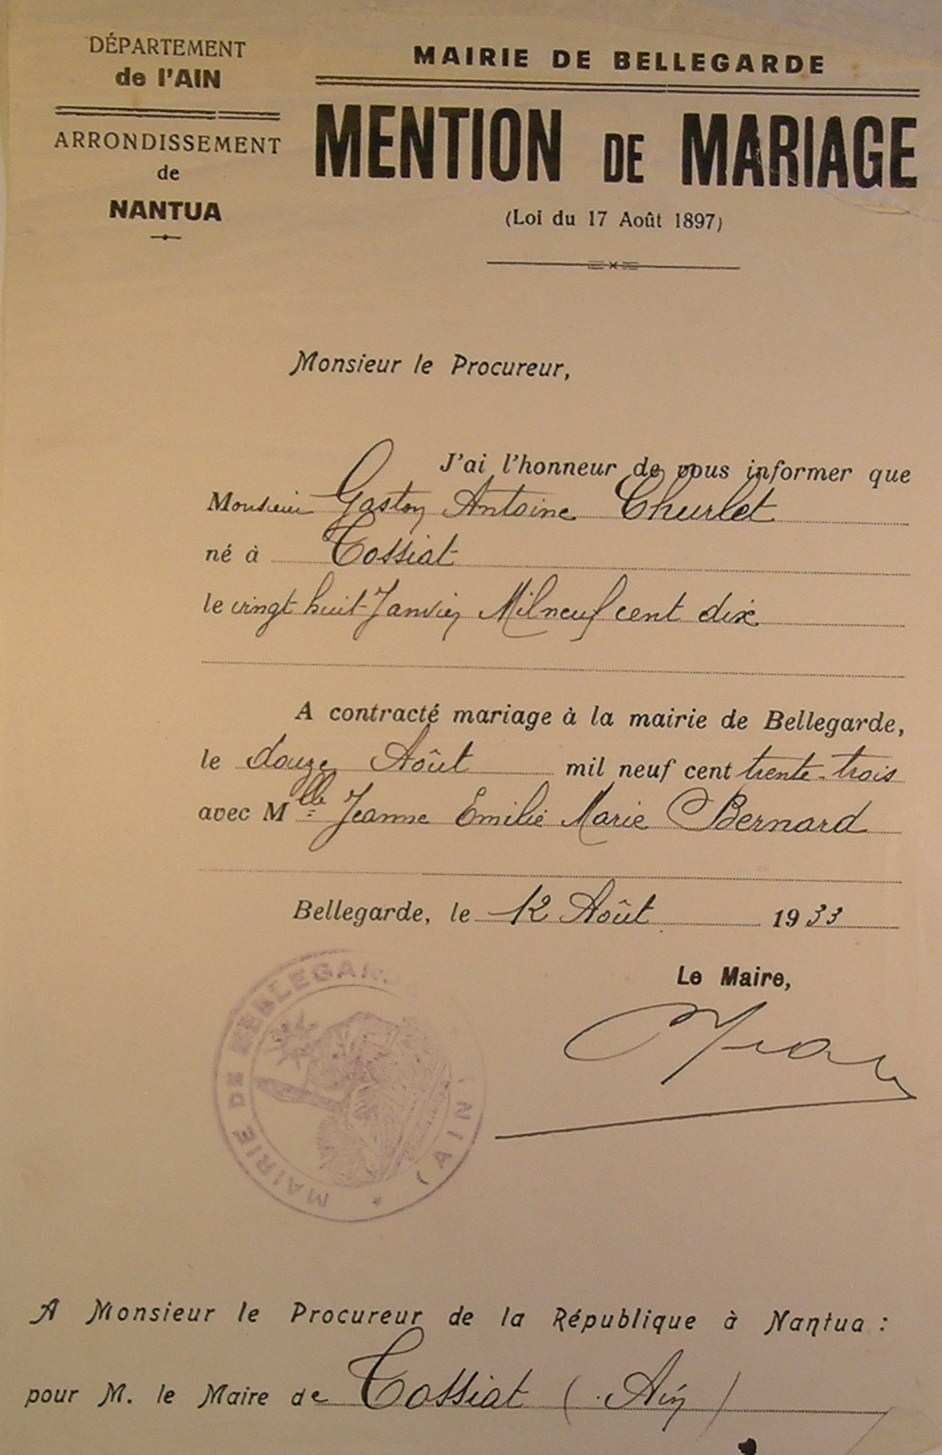 DÉPARTEMENT
de l'AIN
ARRONDISSEMENT
de
NANTUA
MAIRIE DE BELLEGARDE
MENTION DE MARIAGE
(Loi du 17 Août 1897)
Monsieur le Procureur,
J'ai l'honneur de vous informer que
Monsieur Gaston Antoine Churlet
né à Tossiat
le vingt huit Janvier Mil neuf cent dix
A contracté mariage à la mairie de Bellegarde,
le douze Août mil neuf cent trente-trois
avec Mlle Jeanne Emilie Marie Bernard
Bellegarde, le 12 Août 1933
Le Maire,
MAIRIE DE BELLEGAR
(AIN)
A Monsieur le Procureur de la République à Nantua :
pour M. le Maire de Tossiat (Ain)